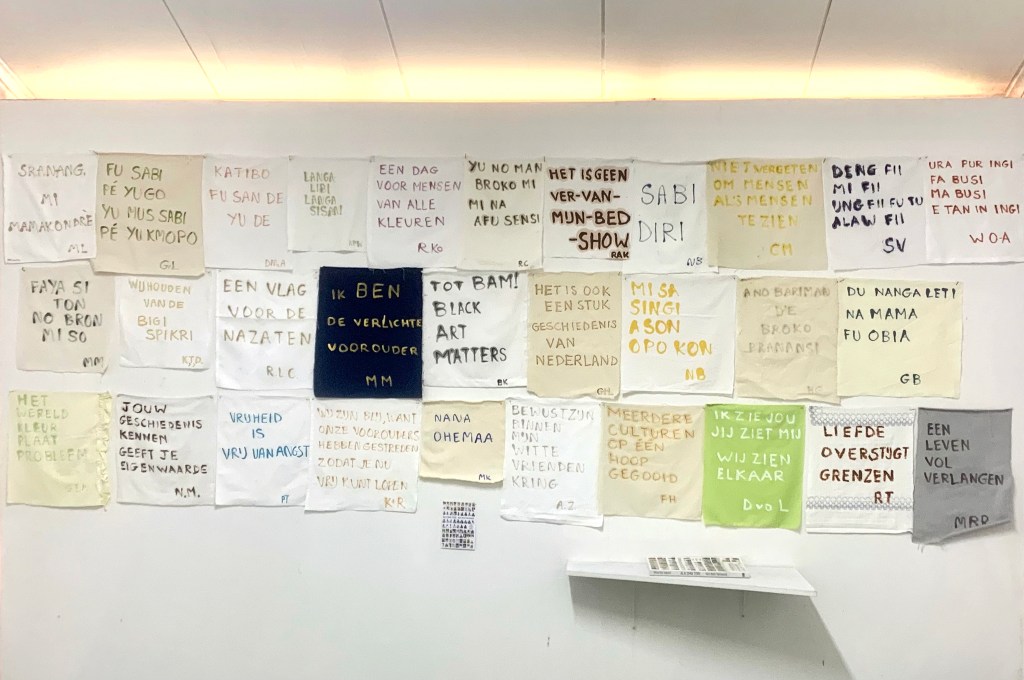 SRANANG.
MI
MAMAKONDRE
ML
FU SABI
PÉ YU GO
YU MUS SABI
PÉ YU KMOPO
G.L.
KATIBO
FU SAN DE
YU DE
LANGA
LIBI
LANGA
SISANI
EEN DAG
VOOR MENSEN
VAN ALLE
KLEUREN
R.Ko
YU NO MAN
BROKO MI
MI NA
AFU SENSI
R.C
HET IS GEEN
VER-VAN-
MIJN-BED
-SHOW
RAK
SABI
DIRI
NIET VERGETEN
OM MENSEN
ALS MENSEN
TE ZIEN
CM
DENG FII
MI FII
UNG FII FU TU
ALAW FII
SV
URA PUR INGI
FA BUSI
MA BUSI
E TAN IN INGI
W.O.A
FAYA SI
TON
NO BRON
MI SO
MM
WIJ HOUDEN
VAN DE
BIGI
SPIKRI
K.J.D.
EEN VLAG
VOOR DE
NAZATEN
R.L.C
IK BEN
DE VERLICHTE
VOOROUDER
MM
TOT BAM!
BLACK
ART
MATTERS
BK
HET IS OOK
EEN STUK
GESCHIEDENIS
VAN
NEDERLAND
MI SA
SINGI
A SON
OPO KON
NB
ANO BARIMAN
D'E
BROKO
BRANANSI
DU NANGA LETI
NA MAMA
FU OBIA
GB
HET
WERELD
KLEUR
PLAAT
PROBLEEM
JOUW
GESCHIEDENIS
KENNEN
GEEFT JE
EIGENWAARDE
N.M.
VRIJHEID
IS
VRIJ VAN ANGST
PT
WIJ ZIJN BLIJ, WANT
ONZE VOOROUDERS
HEBBEN GESTREDEN
ZODAT JE NU
VRIJ KUNT LOPEN
K+R
NANA
OHEMAA
MK
BEWUSTZIJN
BINNEN
MIJN
WITTE
VRIENDEN
KRING
A.Z
MEERDERE
CULTUREN
OP ÉÉN
HOOP
GEGOOID
FH
IK ZIE JOU
JIJ ZIET MIJ
WIJ ZIEN
ELKAAR
DvoL
LIEFDE
OVERSTIJGT
GRENZEN
RT
EEN
LEVEN
VOL
VERLANGEN
MRD